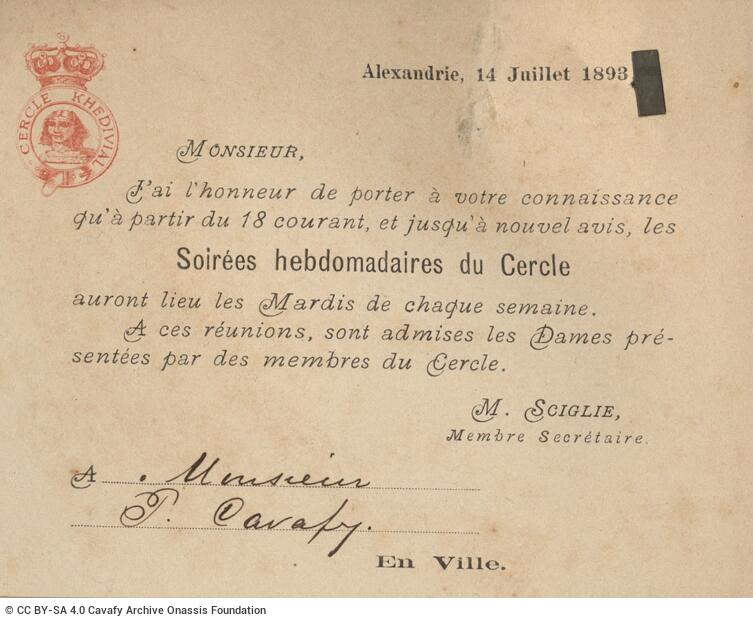 CERCLE KHEDIVIAL
Alexandrie, 14 Juillet 1893
MONSIEUR,
J'ai l'honneur de porter à votre connaissance
qu'à partir du 18 courant, et jusqu'à nouvel avis, les
Soirées hebdomadaires du Cercle
auront lieu les Mardis de chaque semaine.
A ces réunions, sont admises les Dames pré-
sentées par des membres du Cercle.
M. SCIGLIE,
Membre Secrétaire.
A Monsieur
P. Cavafy.
En Ville.
© CC BY-SA 4.0 Cavafy Archive Onassis Foundation